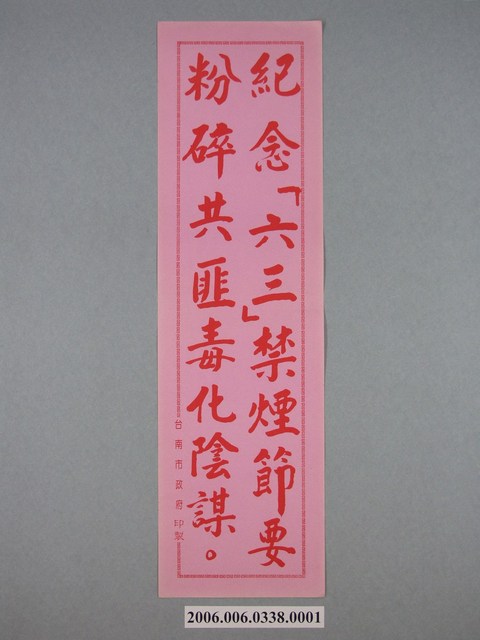 紀念「六三」禁煙節要
粉碎共匪毒化陰謀。
台南市政府印製
2006.006.0338.0001